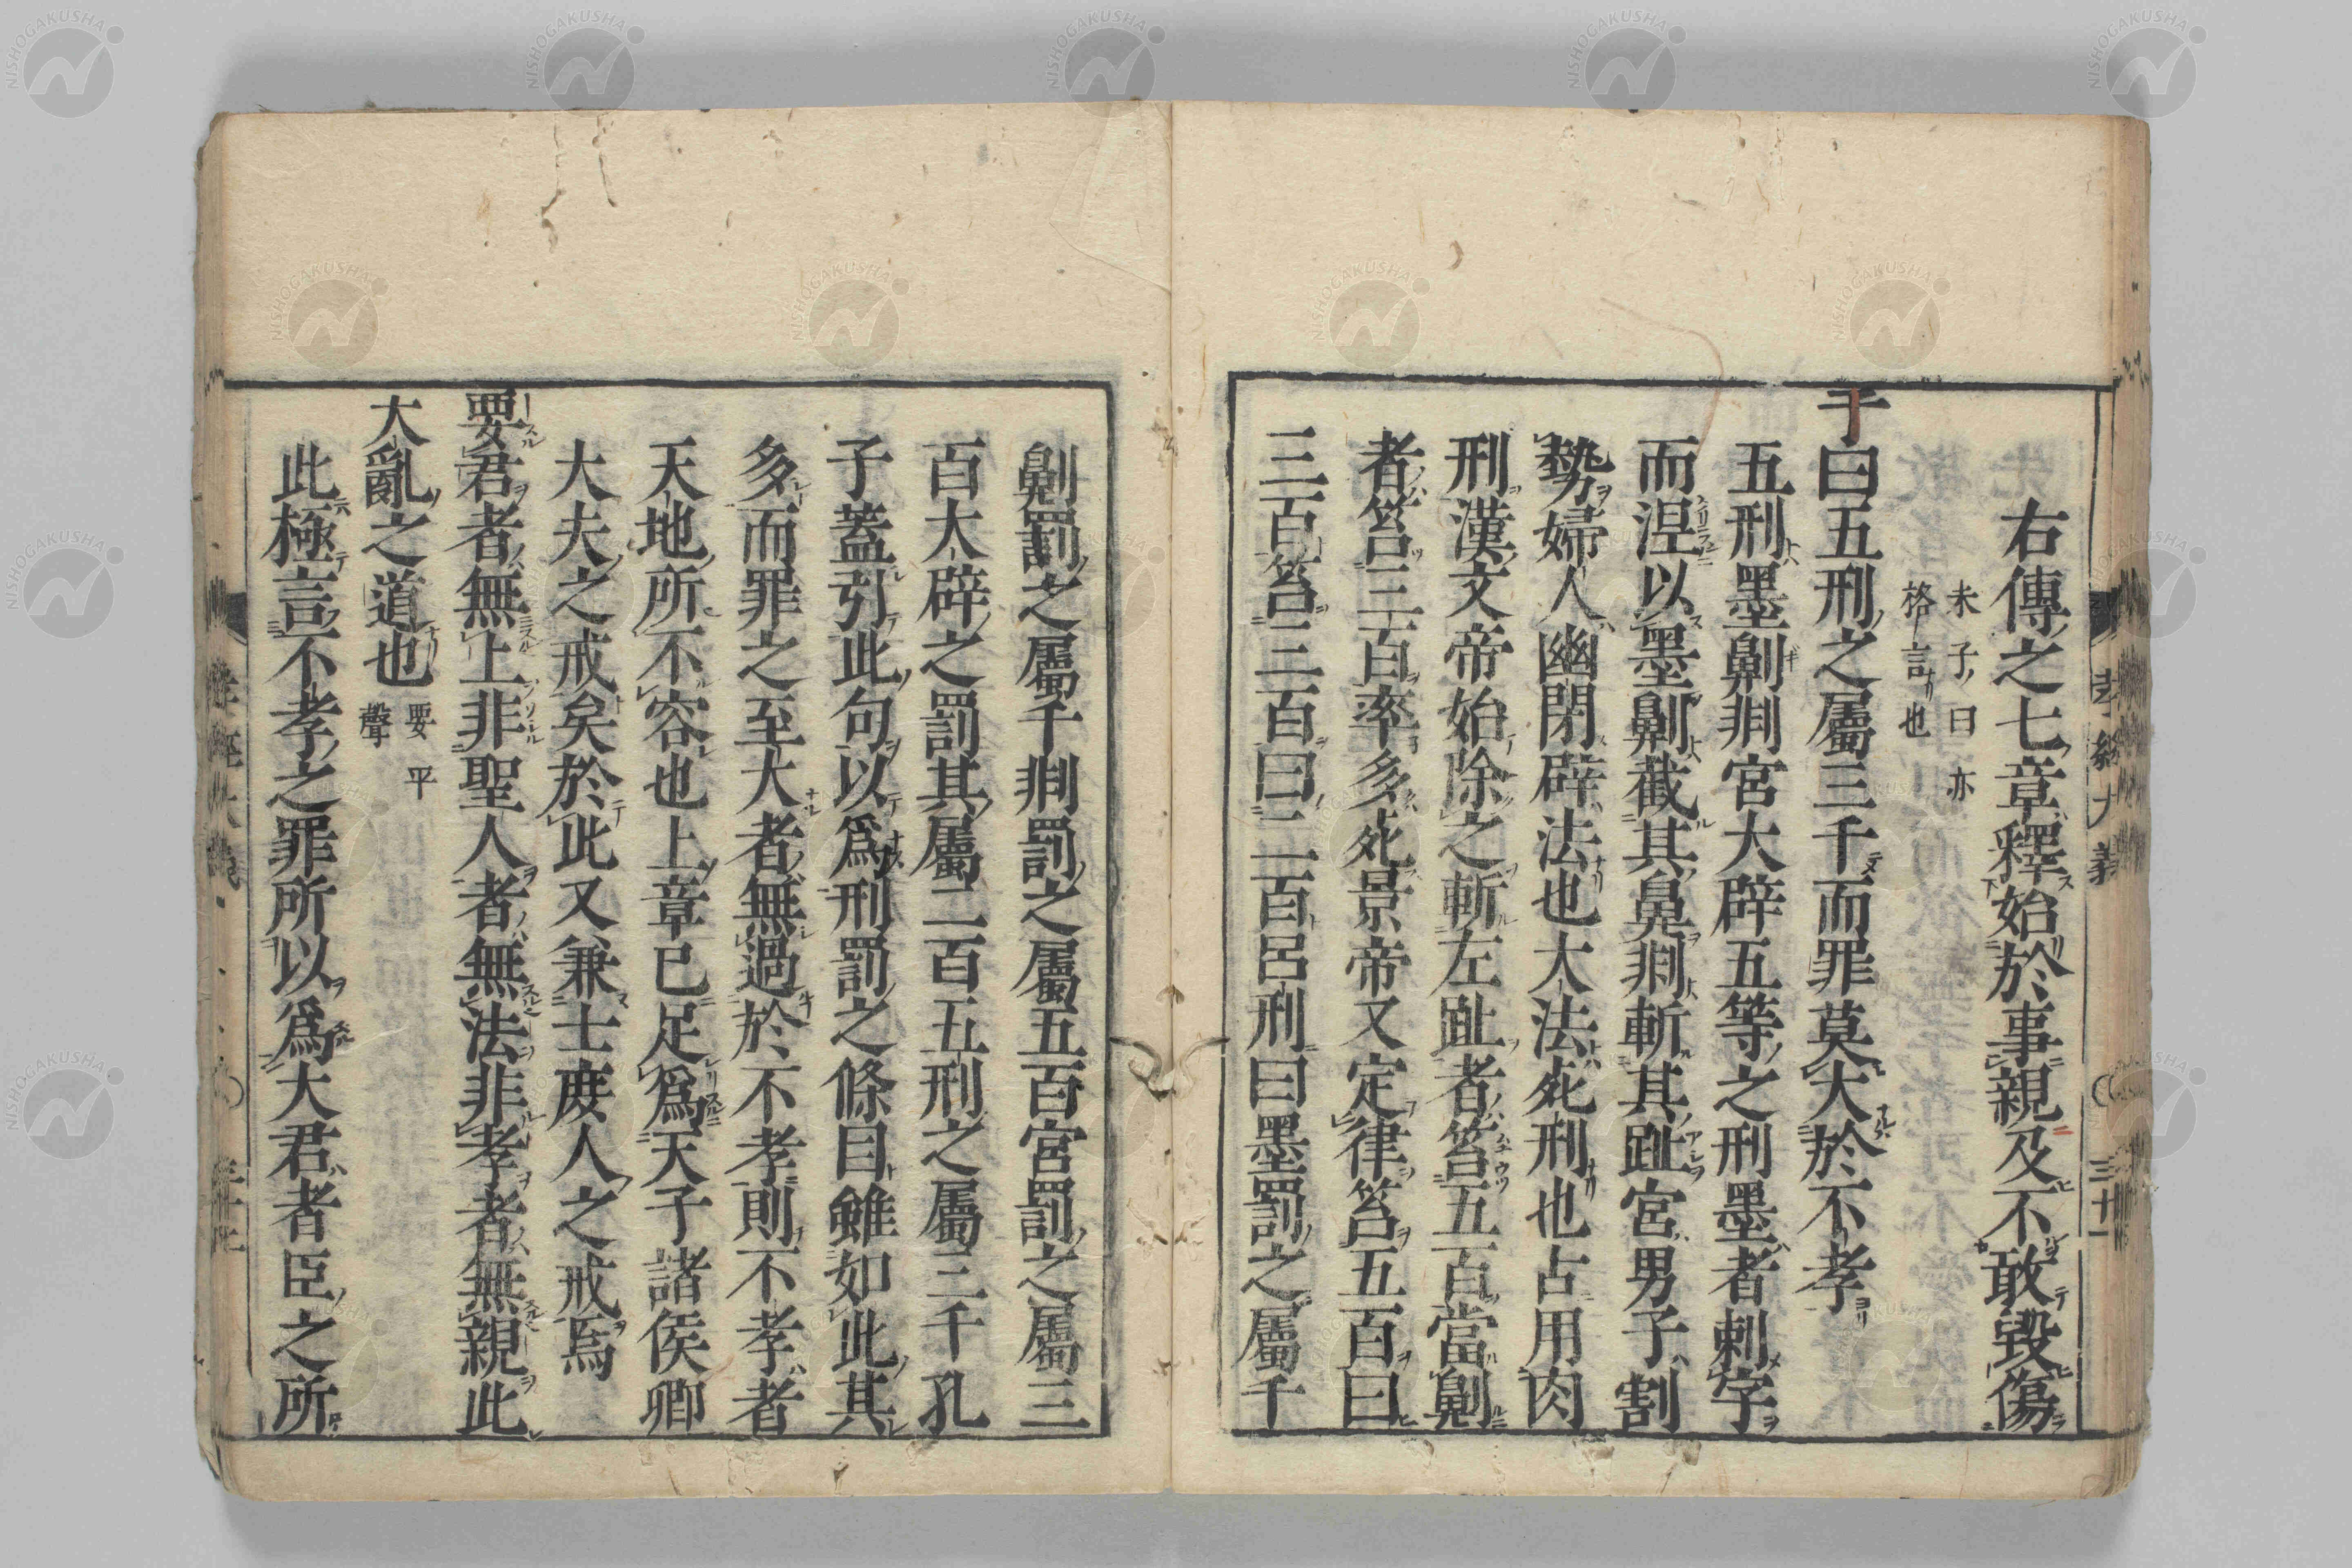 右傳之七章釋始於事親及不敢毀傷
朱子曰亦
格言也
子曰五刑之屬三千而罪莫大於不孝
五刑墨劓剕宮大辟五等之刑墨者刺字
而涅以墨劓截其鼻剕斬其趾宮男子割
勢婦人幽閉辟法也大法死刑也占用肉
刑漢文帝始除之斬左趾者笞五百當劓
者笞三百率多死景帝又定律笞五百曰
三百笞三百曰二百呂刑曰墨罰之屬千
劓罰之屬千剕罰之屬五百宮罰之屬三
百大辟之罰其屬二百五刑之屬三千孔
子蓋引此句以爲刑罰之條目雖如此其
多而罪之至大者無過於不孝則不孝者
天地所不容也上章已足爲天子諸侯卿
大夫之戒矣於此又兼士庶人之戒焉
要君者無上非聖人者無法非孝者無親此
大亂之道也
要平
聲
此極言不孝之罪所以爲大君者臣之所
孝經大義
三十一
NISHOGAKUSHA